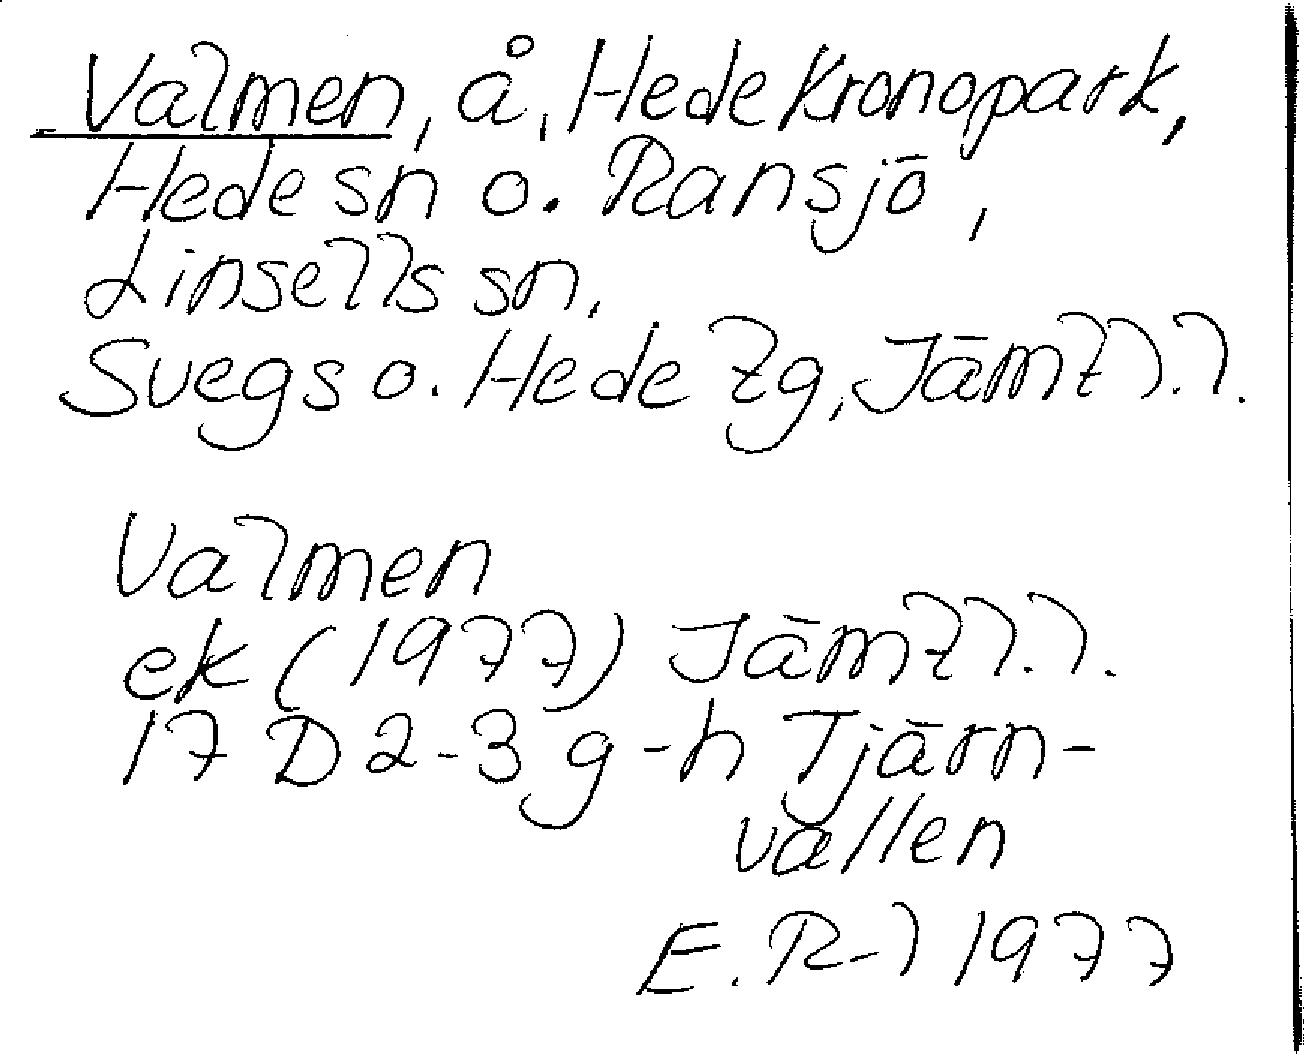 Valmen, å, Hede Kronopark,
Hede sn o. Ransjö,
Linsells sn,
Svegs o. Hede lg, Jämtl. l.
Valmen
ek (1977) Jämtl. l.
17 D 2-3 g-h Tjärn-
vallen
E. R-l 1977